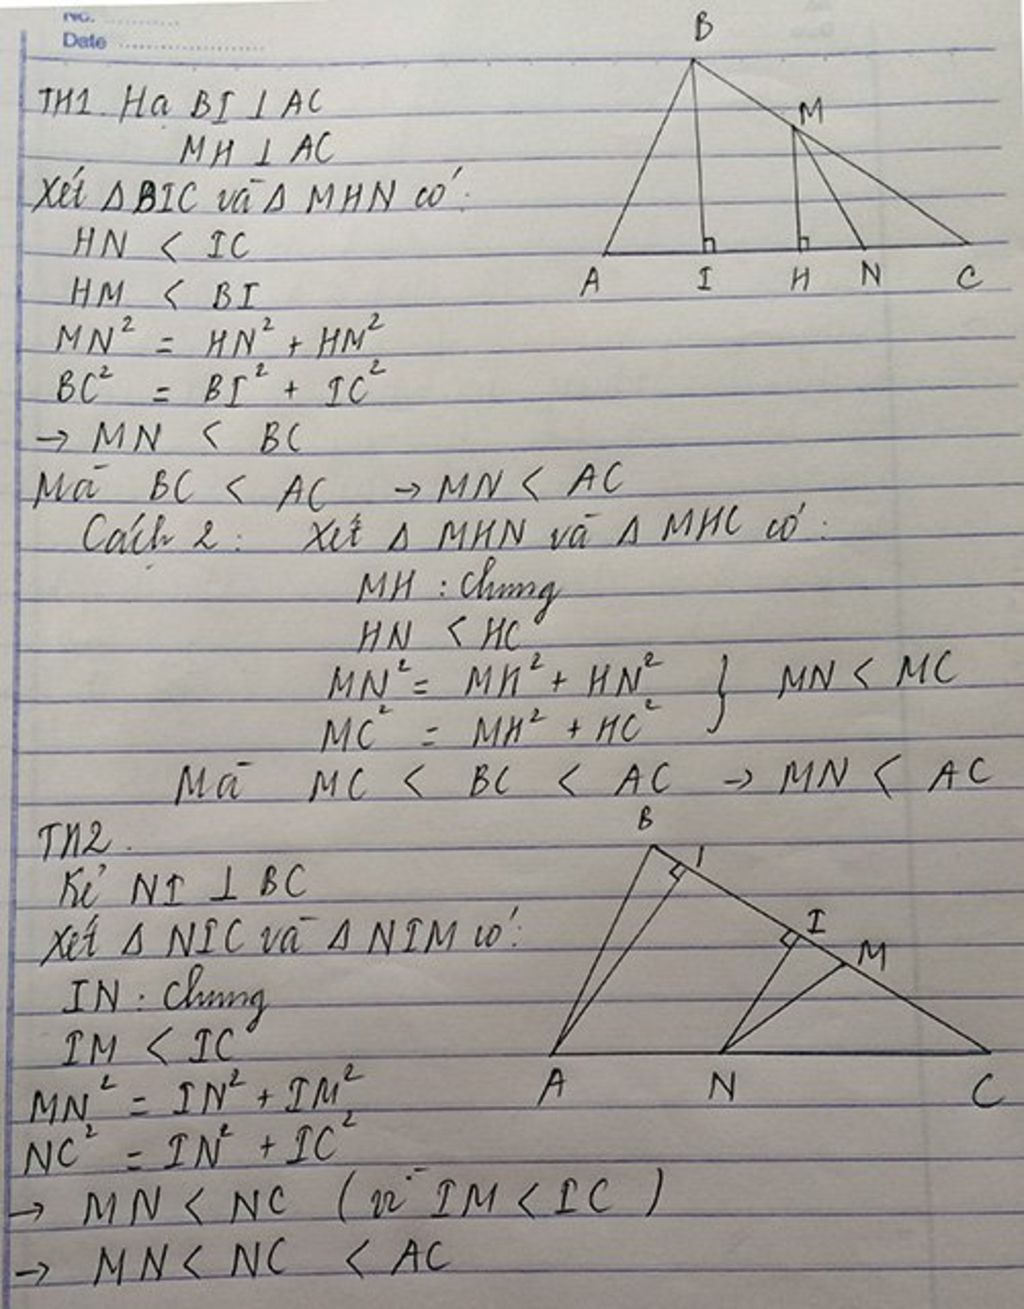 NO. ............
Date ........................
B
TH1. Hạ BI ⊥ AC
M
MH ⊥ AC
Xét Δ BIC và Δ MHN có:
HN < IC
A I H N C
HM < BI
MN² = HN² + HM²
BC² = BI² + IC²
→ MN < BC
Mà BC < AC → MN < AC
Cách 2: Xét Δ MHN và Δ MHC có:
MH : chung
HN < HC
MN² = MH² + HN² } MN < MC
MC² = MH² + HC²
Mà MC < BC < AC → MN < AC
B
TH2.
Kẻ NI ⊥ BC
I
Xét Δ NIC và Δ NIM có:
M
IN : chung
IM < IC
A N C
MN² = IN² + IM²
NC² = IN² + IC²
→ MN < NC (vì IM < IC)
→ MN < NC < AC